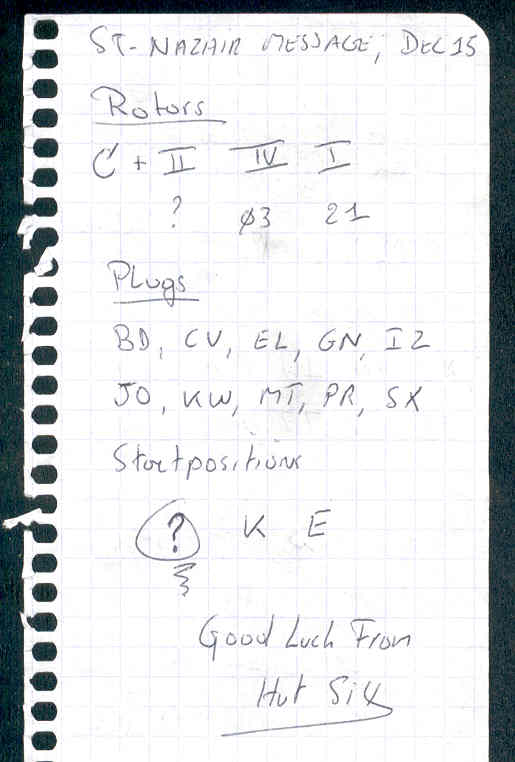 ST-NAZAIR MESSAGE, DEC 15
Rotors
C + II IV I
? Ø3 21
Plugs
BD, CV, EL, GN, IZ
JO, KW, MT, PR, SX
Startpositions
? K E
Good Luck From
Hut Six